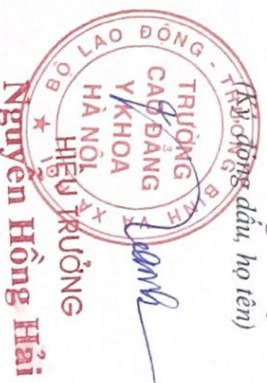 (Ký, đóng dấu, họ tên)
BỘ LAO ĐỘNG - THƯƠNG BINH VÀ XÃ HỘI
TRƯỜNG
CAO ĐẲNG
Y KHOA
HÀ NỘI
HIỆU TRƯỞNG
Nguyễn Hồng Hải